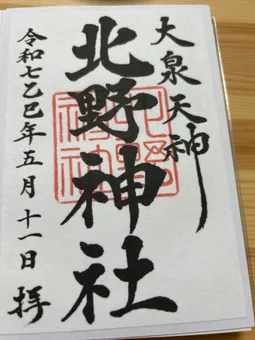 大泉天神
北野神社
北野
神社
令和七乙巳年五月十一日 拝